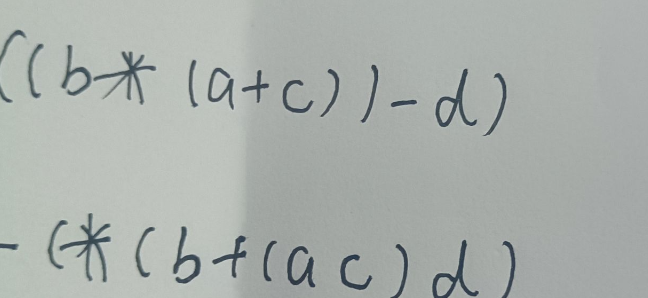 ((b* (a+c))-d)
- (* (b+(ac)d)